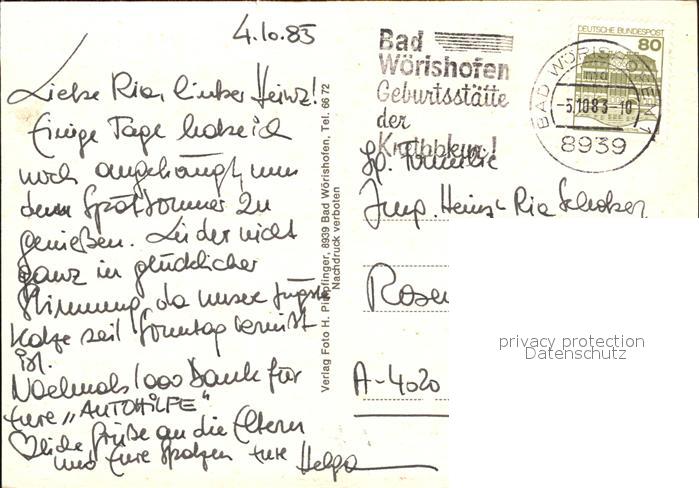 4.10.83
Liebe Ria, lieber Heinz!
Einige Tage habe ich
noch angehängt, um
den Spätsommer zu
genießen. Leider nicht
ganz in glücklicher
Stimmung, da unsere jüngste
Katze seit Sonntag vermißt
ist.
Nochmals 1000 Dank für
Eure "AUTOHILFE"
♡liche Grüße an die Eltern
und Eure Spatzen Eure Helga
Verlag Foto H. Pimpfinger, 8939 Bad Wörishofen, Tel. 66 72
Nachdruck verboten
Bad
Wörishofen
Geburtsstätte
der
Kneippkur!
BAD WÖRISHOFEN 1
-5.10.83-10
8939
DEUTSCHE BUNDESPOST
80
Familie
Heinz Ria
Rosen
A-4020
privacy protection
Datenschutz